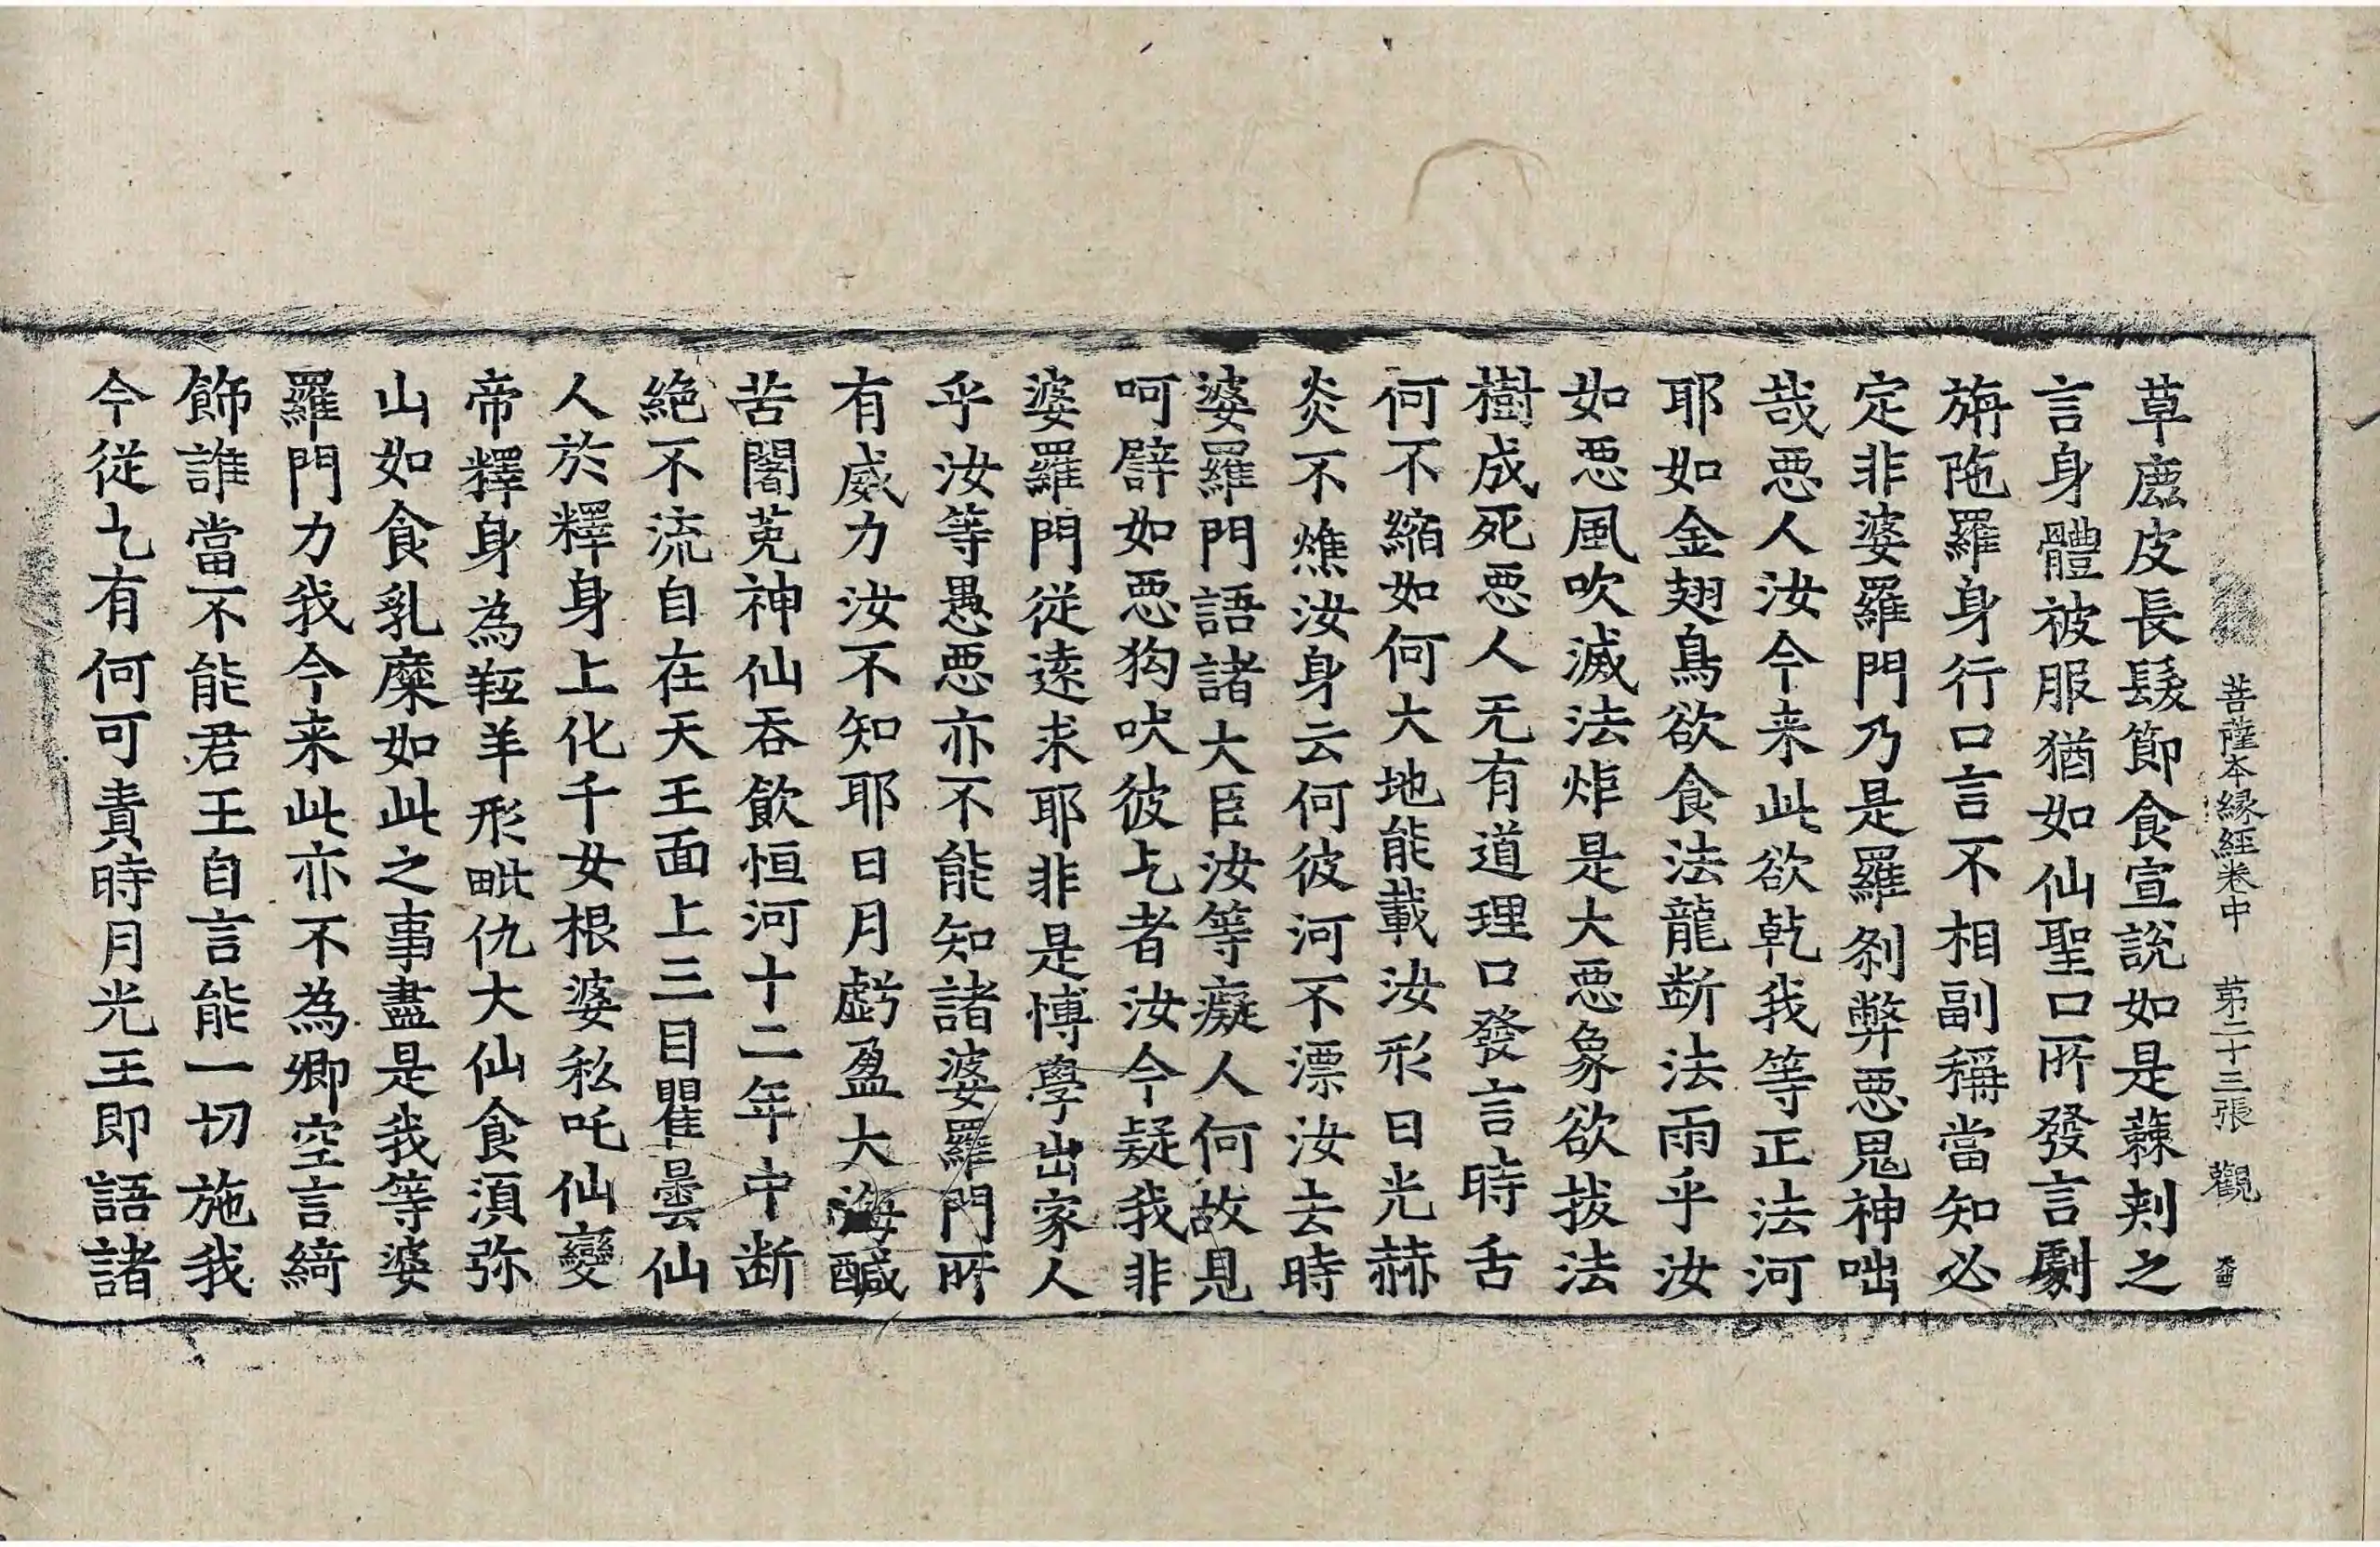 菩薩本縁経卷中 苐二十三張 觀
草鹿皮長髮節食宣說如是蕀刾之
言身體被服猶如仙聖口所發言劇
旃陁羅身行口言不相副稱當知必
定非婆羅門乃是羅刹弊惡鬼神咄
哉惡人汝今来此欲乾我等正法河
耶如金翅鳥欲食法龍断法雨乎汝
如惡風吹滅法炬是大惡象欲拔法
樹成死惡人无有道理口發言時舌
何不縮如何大地能載汝形日光赫
炎不燋汝身云何彼河不漂汝去時
婆羅門語諸大臣汝等癡人何故見
呵譬如惡狗吠彼乞者汝今疑我非
婆羅門從遠求耶非是博學出家人
乎汝等愚惡亦不能知諸婆羅門所
有威力汝不知耶日月虧盈大海醎
苦闍莬神仙吞飲恒河十二年中断
絶不流自在天王面上三目瞿曇仙
人於釋身上化千女根婆私吒仙變
帝釋身為羝羊形毗仇大仙食湏弥
山如食乳糜如此之事盡是我等婆
羅門力我今来此亦不為卿空言綺
飾誰當不能君王自言能一切施我
今從乞有何可責時月光王即語諸